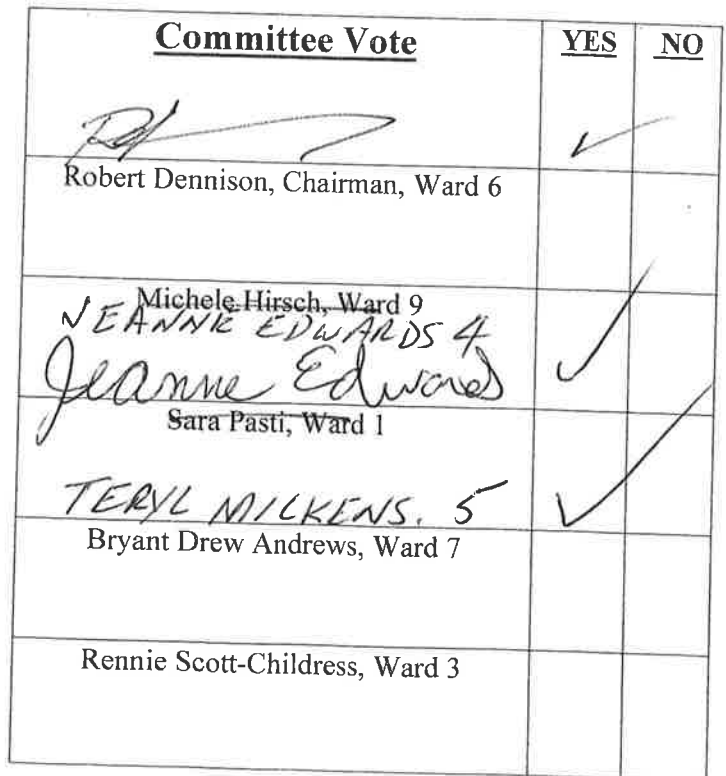 Committee Vote YES NO
Robert Dennison, Chairman, Ward 6
Michele Hirsch, Ward 9
JEANNE EDWARDS 4
Jeanne Edwards
Sara Pasti, Ward 1
TERYL MICKENS. 5
Bryant Drew Andrews, Ward 7
Rennie Scott-Childress, Ward 3